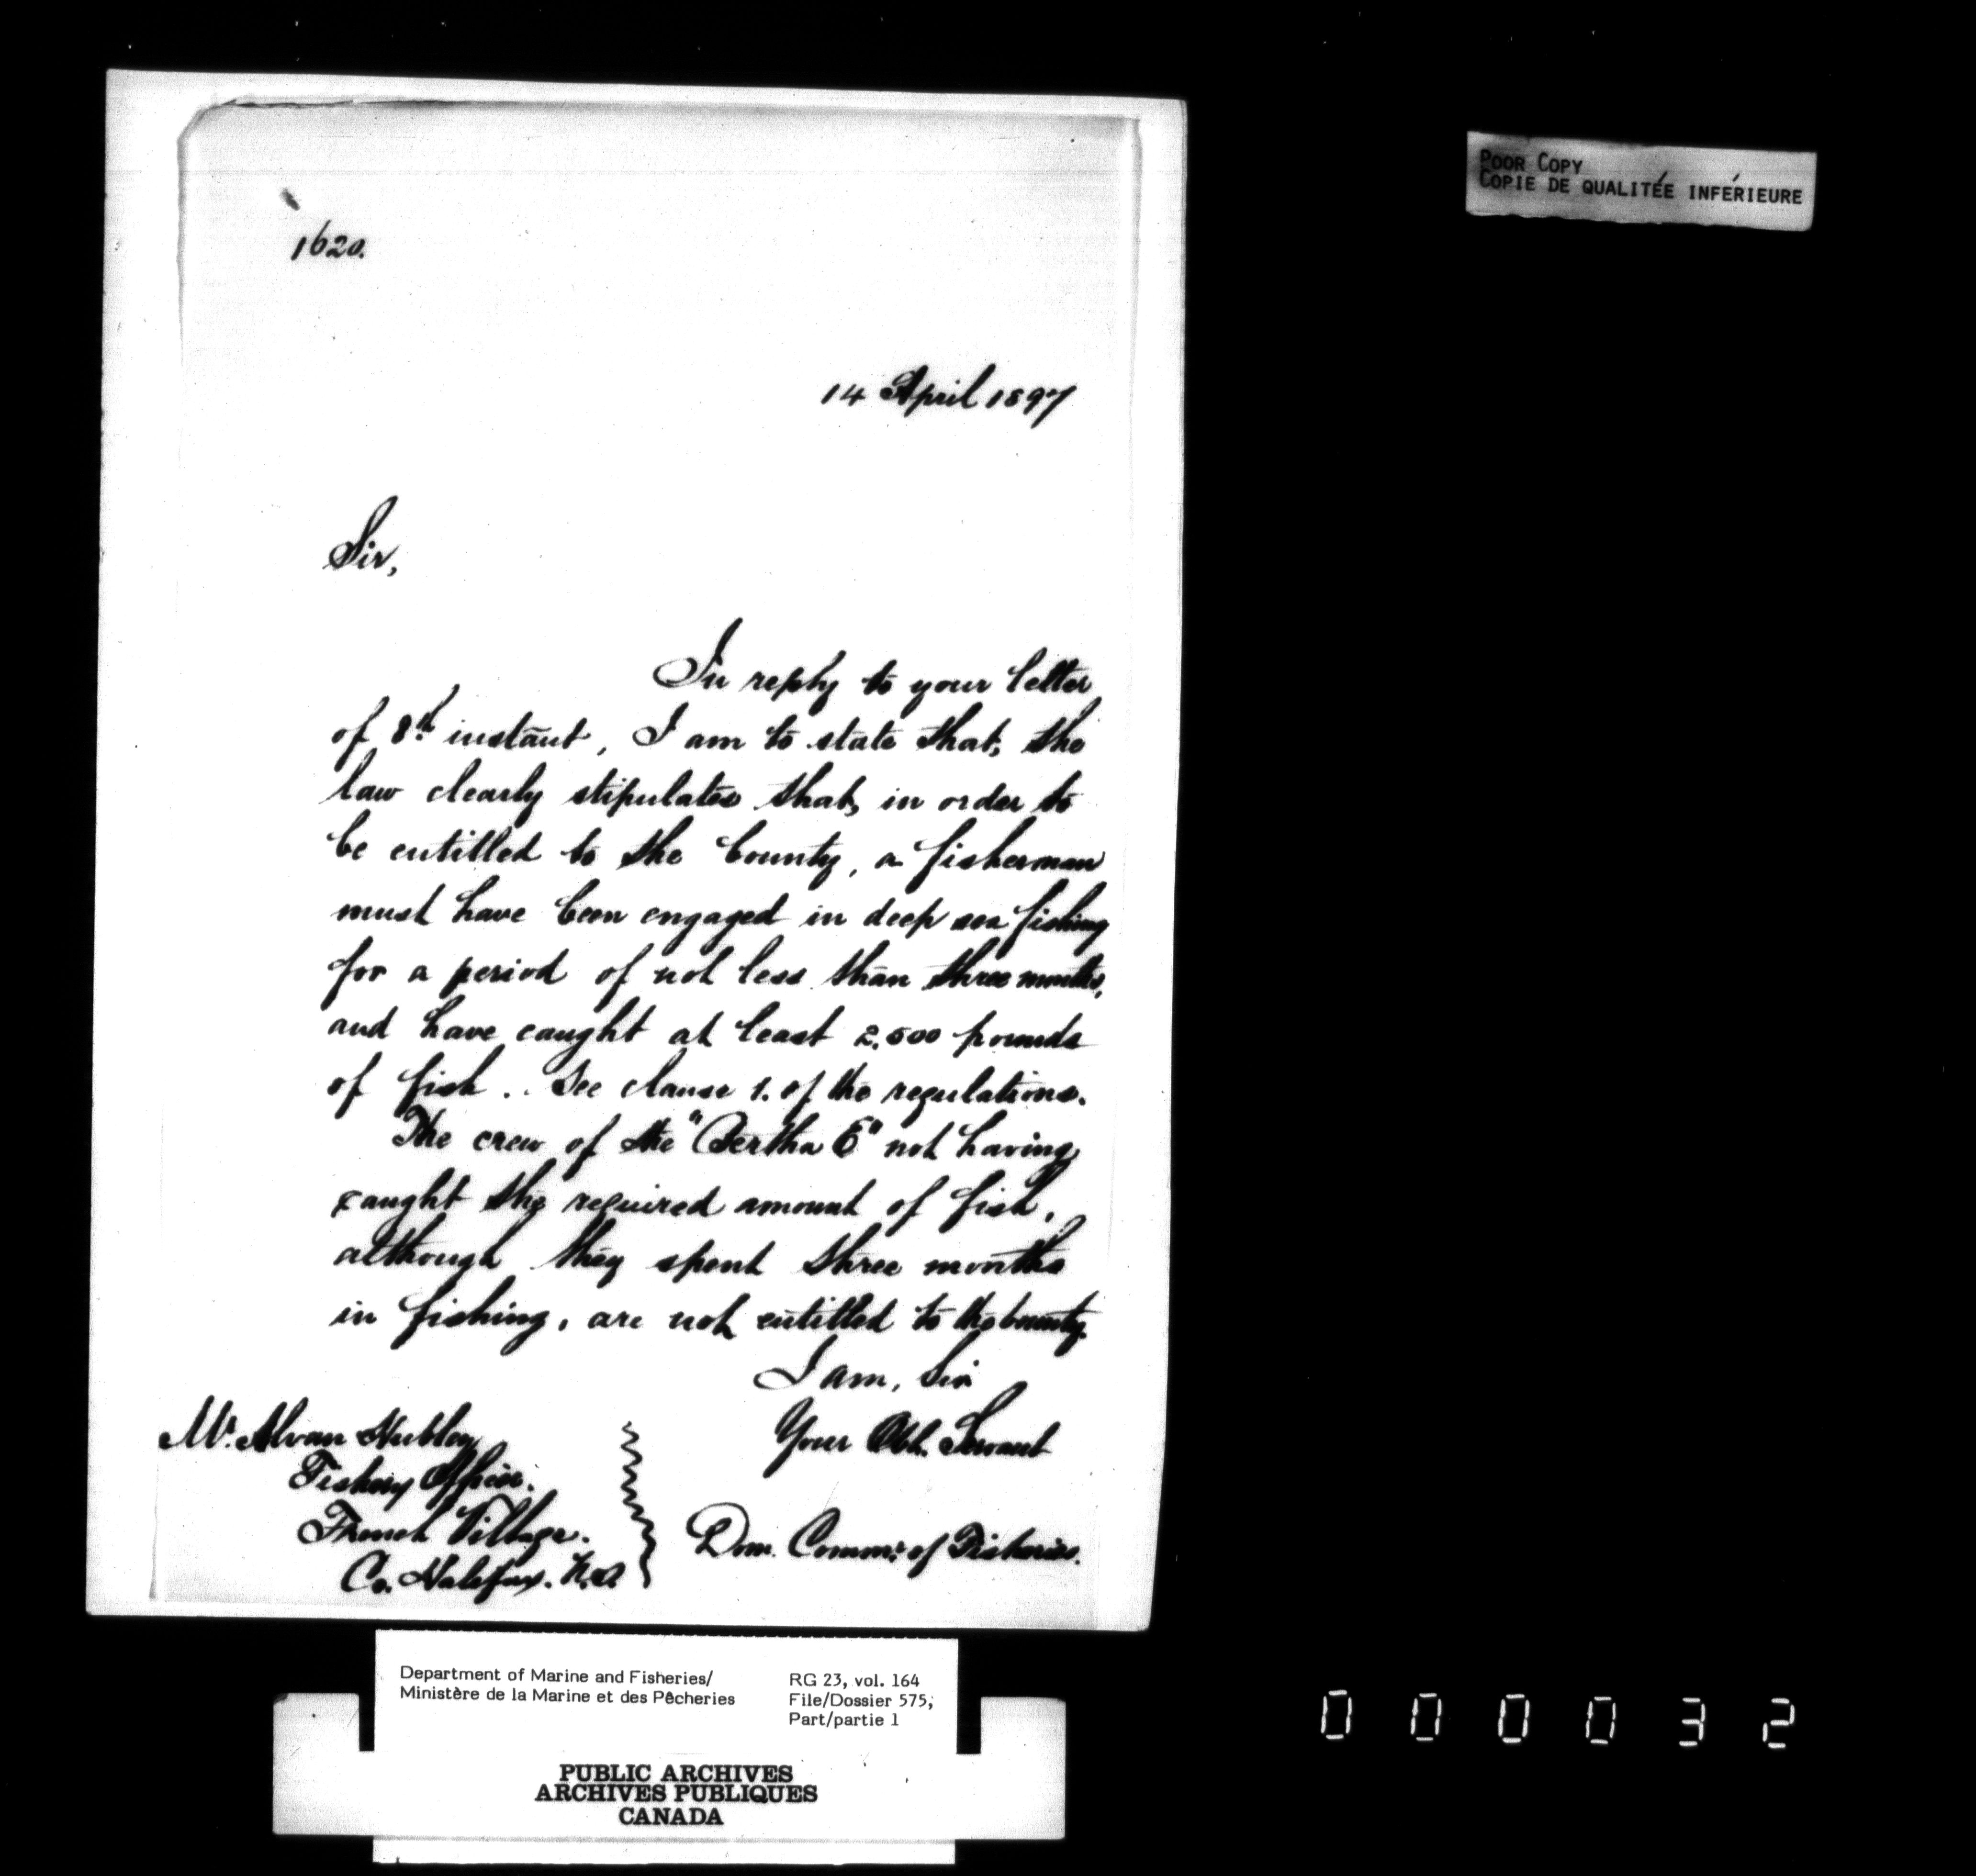 POOR COPY
COPIE DE QUALITÉE INFÉRIEURE
1620.
14 April 1897
Sir,
In reply to your letter
of 8th instant, I am to state that, the
law clearly stipulates that, in order to
be entitled to the bounty, a fisherman
must have been engaged in deep sea fishing
for a period of not less than three months,
and have caught at least 2.500 pounds
of fish. See clause 1. of the regulations.
The crew of the "Bertha E" not having
caught the required amount of fish,
although they spent three months
in fishing, are not entitled to the bounty.
I am, Sir
Your Obt. Servant
Dom. Commr. of Fisheries.
Mr. Alvan Hubley
Fishery Officer.
French Village.
Co. Halifax. N.S.
Department of Marine and Fisheries/
Ministère de la Marine et des Pêcheries
RG 23, vol. 164
File/Dossier 575,
Part/partie 1
PUBLIC ARCHIVES
ARCHIVES PUBLIQUES
CANADA
000032